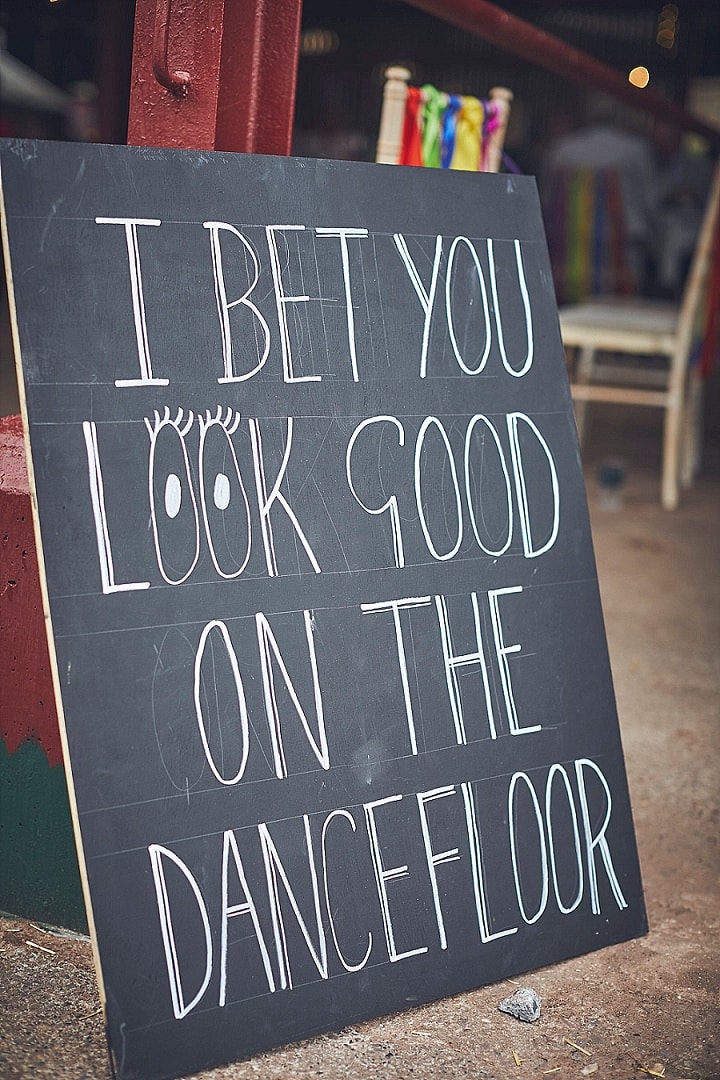 I BET YOU
LOOK GOOD
ON THE
DANCEFLOOR